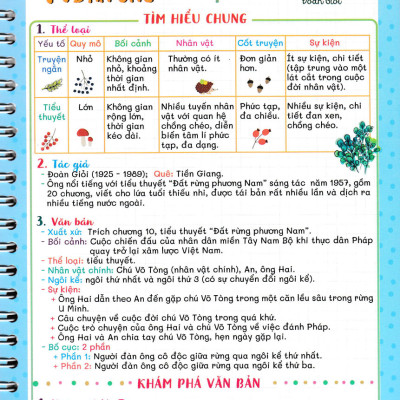 Đoàn Giỏi
TÌM HIỂU CHUNG
1. Thể loại
Yếu tố Quy mô Bối cảnh Nhân vật Cốt truyện Sự kiện
Truyện ngắn Nhỏ Không gian nhỏ, khoảng thời gian nhất định. Thường có ít nhân vật. Đơn giản hơn. Ít sự kiện, chi tiết (tập trung vào một lát cắt trong cuộc đời nhân vật).
Tiểu thuyết Lớn Không gian rộng lớn, thời gian kéo dài. Nhiều tuyến nhân vật với quan hệ chồng chéo, diễn biến tâm lí phức tạp, đa dạng. Phức tạp, đa chiều. Nhiều sự kiện, chi tiết đan xen, chồng chéo.
2. Tác giả
- Đoàn Giỏi (1925 - 1989); Quê: Tiền Giang.
- Ông nổi tiếng với tiểu thuyết "Đất rừng phương Nam" sáng tác năm 1957, gồm
20 chương, viết cho lứa tuổi thiếu nhi, được tái bản rất nhiều lần và dịch ra
nhiều tiếng nước ngoài.
3. Văn bản
- Xuất xứ: Trích chương 10, tiểu thuyết "Đất rừng phương Nam".
- Bối cảnh: Cuộc chiến đấu của nhân dân miền Tây Nam Bộ khi thực dân Pháp
quay trở lại xâm lược Việt Nam.
- Thể loại: tiểu thuyết.
- Nhân vật chính: Chú Võ Tòng (nhân vật chính), An, ông Hai.
- Ngôi kể: ngôi thứ nhất và ngôi thứ 3 (có sự chuyển đổi ngôi kể).
- Sự kiện:
+ Ông Hai dẫn theo An đến gặp chú Võ Tòng trong một căn lều sâu trong rừng
U Minh.
+ Câu chuyện về cuộc đời chú Võ Tòng trong quá khứ.
+ Cuộc trò chuyện của ông Hai và chú Võ Tòng về việc đánh Pháp.
+ Ông Hai và An chia tay chú Võ Tòng, hẹn ngày gặp lại.
- Bố cục: 2 phần
+ Phần 1: Người đàn ông cô độc giữa rừng qua ngôi kể thứ nhất.
+ Phần 2: Người đàn ông cô độc giữa rừng qua ngôi kể thứ ba.
KHÁM PHÁ VĂN BẢN